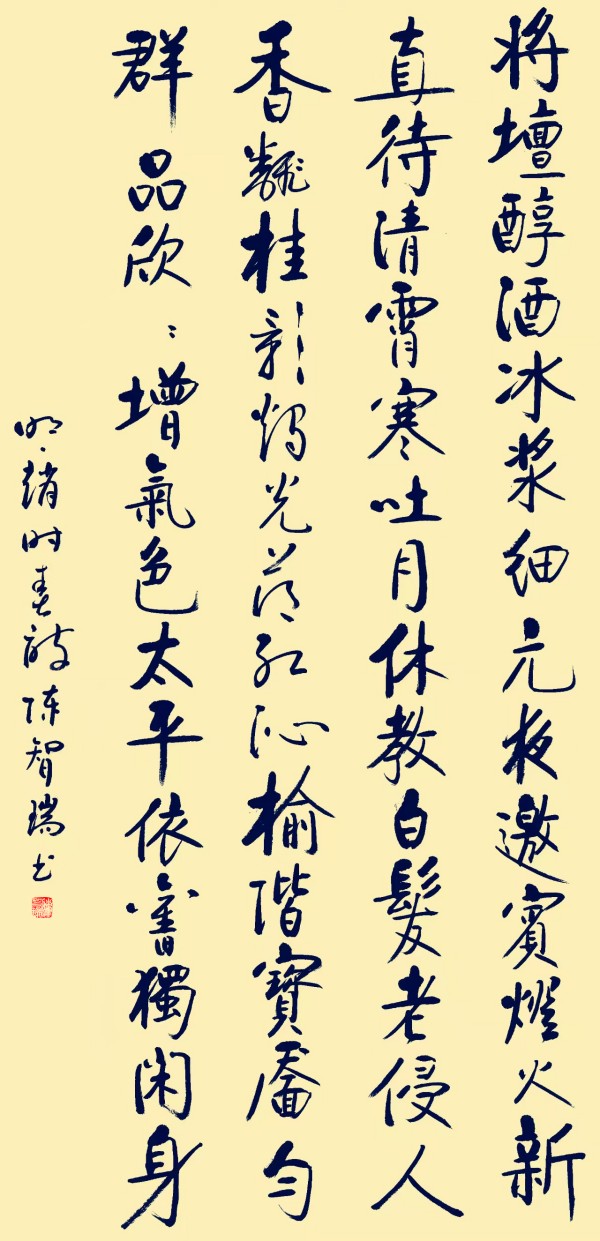 将壇醇酒冰漿細元夜邀賓燈火新
直待清霄寒吐月休教白髮老侵人
香飜桂影燭光薄红沁榆階寶靨匀
群品欣〻增氣色太平依舊獨闲身
明、趙时春詩陈智瑞书